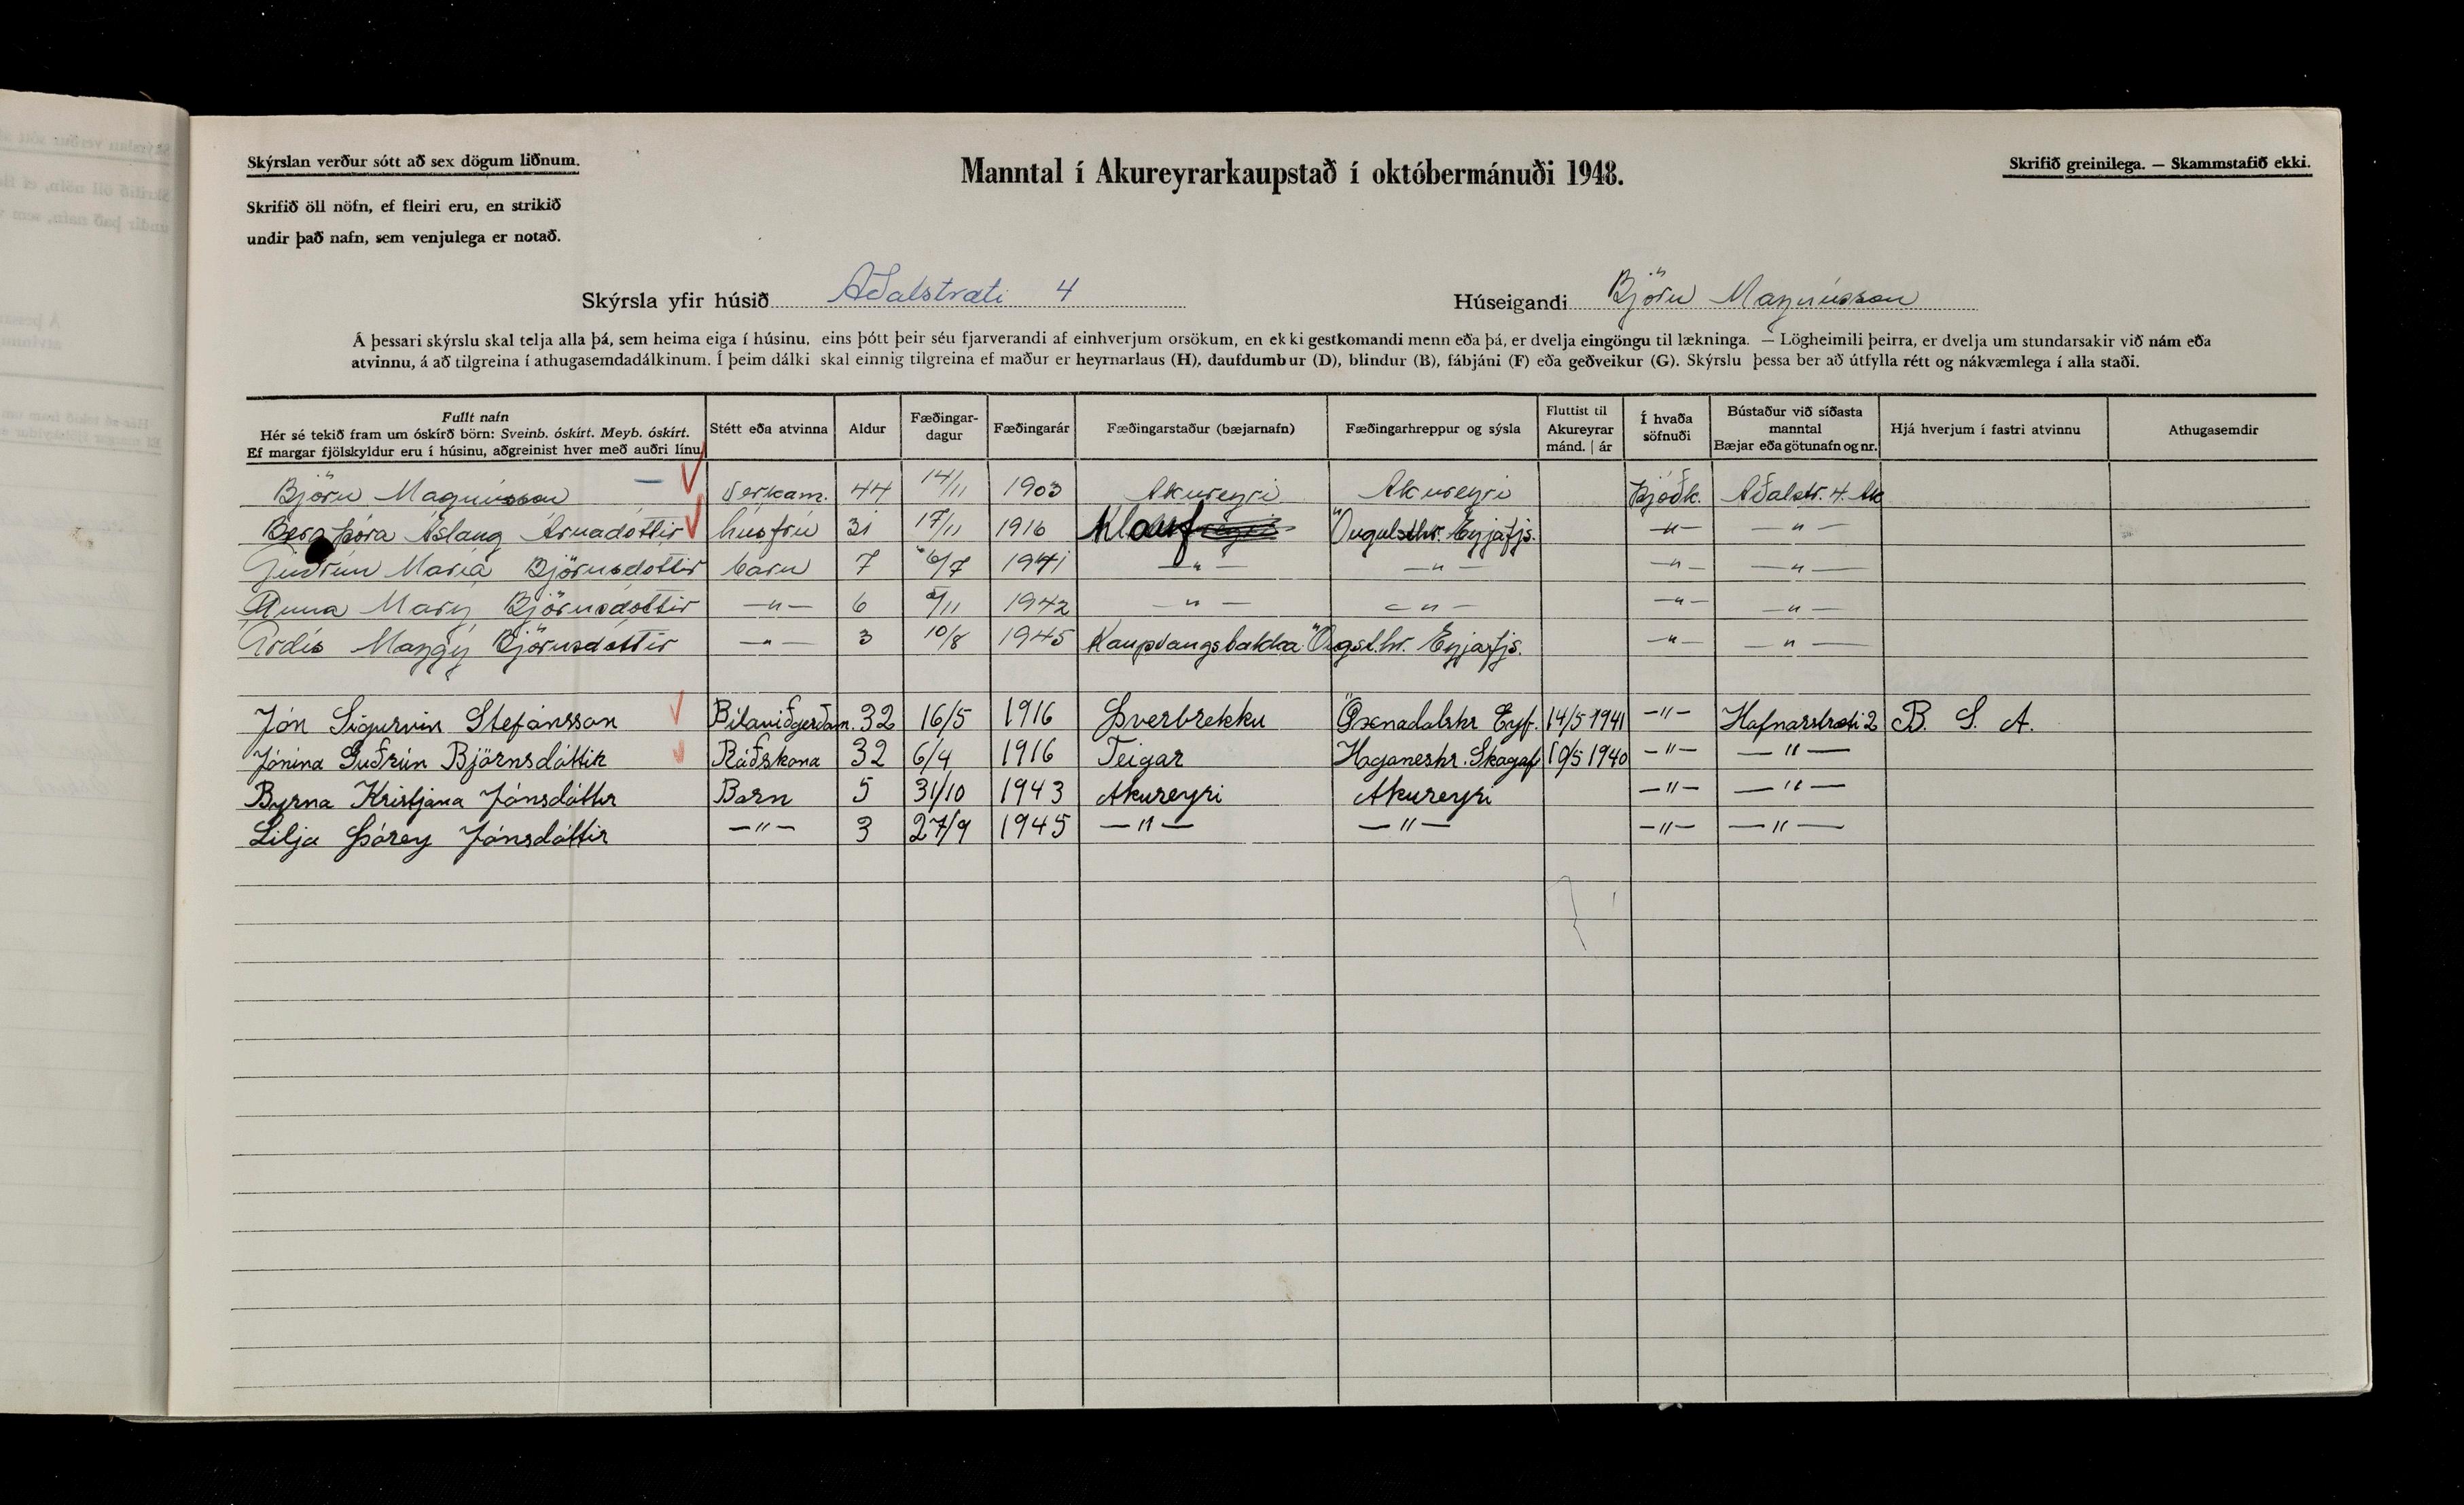 Skýrslan verður sótt að sex dögum liðnum.
Manntal í Akureyrarkaupstað í októbermánuði 1948.
Skrifið greinilega. — Skammstafið ekki.
Skrifið öll nöfn, ef fleiri eru, en strikið
undir það nafn, sem venjulega er notað.
Skýrsla yfir húsið Aðalstræti 4 Húseigandi Björn Magnússon
Á þessari skýrslu skal telja alla þá, sem heima eiga í húsinu, eins þótt þeir séu fjarverandi af einhverjum orsökum, en ekki gestkomandi menn eða þá, er dvelja eingöngu til lækninga. — Lögheimili þeirra, er dvelja um stundarsakir við nám eða
atvinnu, á að tilgreina í athugasemdadálkinum. Í þeim dálki skal einnig tilgreina ef maður er heyrnarlaus (H), daufdumbur (D), blindur (B), fábjáni (F) eða geðveikur (G). Skýrslu þessa ber að útfylla rétt og nákvæmlega í alla staði.
Fullt nafn
Hér sé tekið fram um óskírð börn: Sveinb. óskírt. Meyb. óskírt.
Ef margar fjölskyldur eru í húsinu, aðgreinist hver með auðri línu
Stétt eða atvinna
Aldur
Fæðingar-
dagur
Fæðingarár
Fæðingarstaður (bæjarnafn)
Fæðingarhreppur og sýsla
Fluttist til
Akureyrar
mánd. | ár
Í hvaða
söfnuði
Bústaður við síðasta
manntal
Bæjar eða götunafn og nr.
Hjá hverjum í fastri atvinnu
Athugasemdir
Björn Magnússon — Verkam. 44 14/11 1903 Akureyri Akureyri Þjóðk. Aðalstr. 4. Ak
Bergþóra Áslaug Árnadóttir húsfrú 31 17/11 1916 Klauf Öngulsthr. Eyjafjs. —"— —"—
Guðrún María Björnsdóttir barn 7 6/7 1941 —"— —"— —"— —"—
Anna Mary Björnsdóttir —"— 6 /11 1942 —"— —"— —"— —"—
Þrdís Maggý Björnsdóttir —"— 3 10/8 1945 Kaupvangsbakka Öngst.hr. Eyjafjs. —"— —"—
Jón Sigurvin Stefánsson Bílaviðgerðam. 32 16/5 1916 Þverbrekku Öxnadalshr Eyf. 14/5 1941 —"— Hafnarstræti 2 B. S. A.
Jónína Guðrún Björnsdóttir Ráðskona 32 6/4 1916 Teigar Haganeshr. Skagaf 10/5 1940 —"— —"—
Byrna Kristjana Jónsdóttir Barn 5 31/10 1943 Akureyri Akureyri —"— —"—
Lilja Þórey Jónsdóttir —"— 3 27/9 1945 —"— —"— —"— —"—